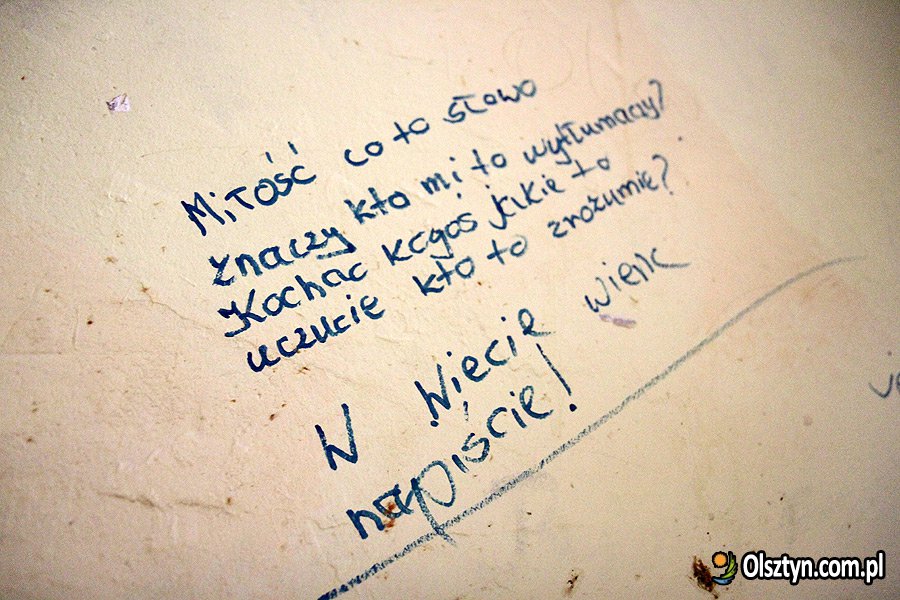 Miłość co to słowo
znaczy kto mi to wytłumaczy?
Kochac kogos jakie to
uczucie kto to zrozumie?
W Wiecie
napiście!
Olsztyn.com.pl